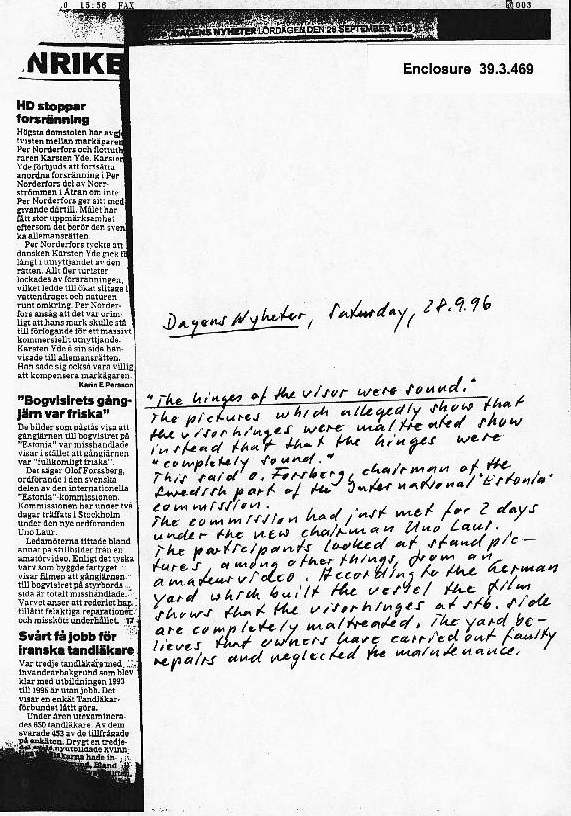 15:56 FAX
003
DAGENS NYHETER LÖRDAGEN DEN 28 SEPTEMBER 1996
NRIKE
Enclosure 39.3.469
HD stoppar
forsränning
Högsta domstolen har avgj
tvisten mellan markägaren
Per Norderfors och flottuth
raren Karsten Yde. Karsten
Yde förbjuds att fortsätta
anordna forsränning i Per
Norderfors del av Norr-
strömmen i Ätran om inte
Per Norderfors ger sitt med-
givande därtill. Målet har
fått stor uppmärksamhet
eftersom det berör den sven
ka allemansrätten.
Per Norderfors tyckte att
dansken Karsten Yde gick f
långt i utnyttjandet av den
rätten. Allt fler turister
lockades av forsränningen,
vilket ledde till ökat slitage i
vattendraget och naturen
runt omkring. Per Norder-
fors ansåg att det var orim-
ligt att hans mark skulle stå
till förfogande för ett massivt
kommersiellt utnyttjande.
Karsten Yde å sin sida hän-
visade till allemansrätten.
Han sade sig också vara villig
att kompensera markägaren.
Karin E Persson
"Bogvisirets gång-
järn var friska"
De bilder som påstås visa att
gångjärnen till bogvisiret på
"Estonia" var misshandlade
visar i stället att gångjärnen
var "fullkomligt friska".
Det säger Olof Forssberg,
ordförande i den svenska
delen av den internationella
"Estonia"-kommissionen.
Kommissionen har under två
dagar träffats i Stockholm
under den nye ordföranden
Uno Laur.
Ledamöterna tittade bland
annat på stillbilder från en
amatörvideo. Enligt det tyska
varv som byggde fartyget
visar filmen att gångjärnen
till bogvisiret på styrbords
sida är totalt misshandlade.
Varvet anser att rederiet har
tillåtit felaktiga reparationer
och misskött underhållet. 17
Svårt få jobb för
iranska tandläkare
Var tredje tandläkare med
invandrarbakgrund som blev
klar med utbildningen 1993
till 1996 är utan jobb. Det
visar en enkät Tandläkar-
förbundet låtit göra.
Under åren utexaminera-
des 650 tandläkare. Av dem
svarade 453 av de tillfrågade
på enkäten. Drygt en tredje-
nyutbildade kvinn
hade in-
Bland
Dagens Nyheter, Saturday, 28.9.96
"The hinges of the visor were sound."
The pictures which allegedly show that
the visorhinges were maltreated show
instead that that the hinges were
"completely sound."
This said O. Forsberg, chairman of the
Swedish part of the International "Estonia"
commission.
The commission had just met for 2 days
under the new chairman Uno Laur.
The participants looked at stand pic-
tures, among other things, from an
amateur video. According to the German
yard which built the vessel the film
shows that the visorhinges at stb. side
are completely maltreated. The yard be-
lieves that owners have carried out faulty
repairs and neglected the maintenance.